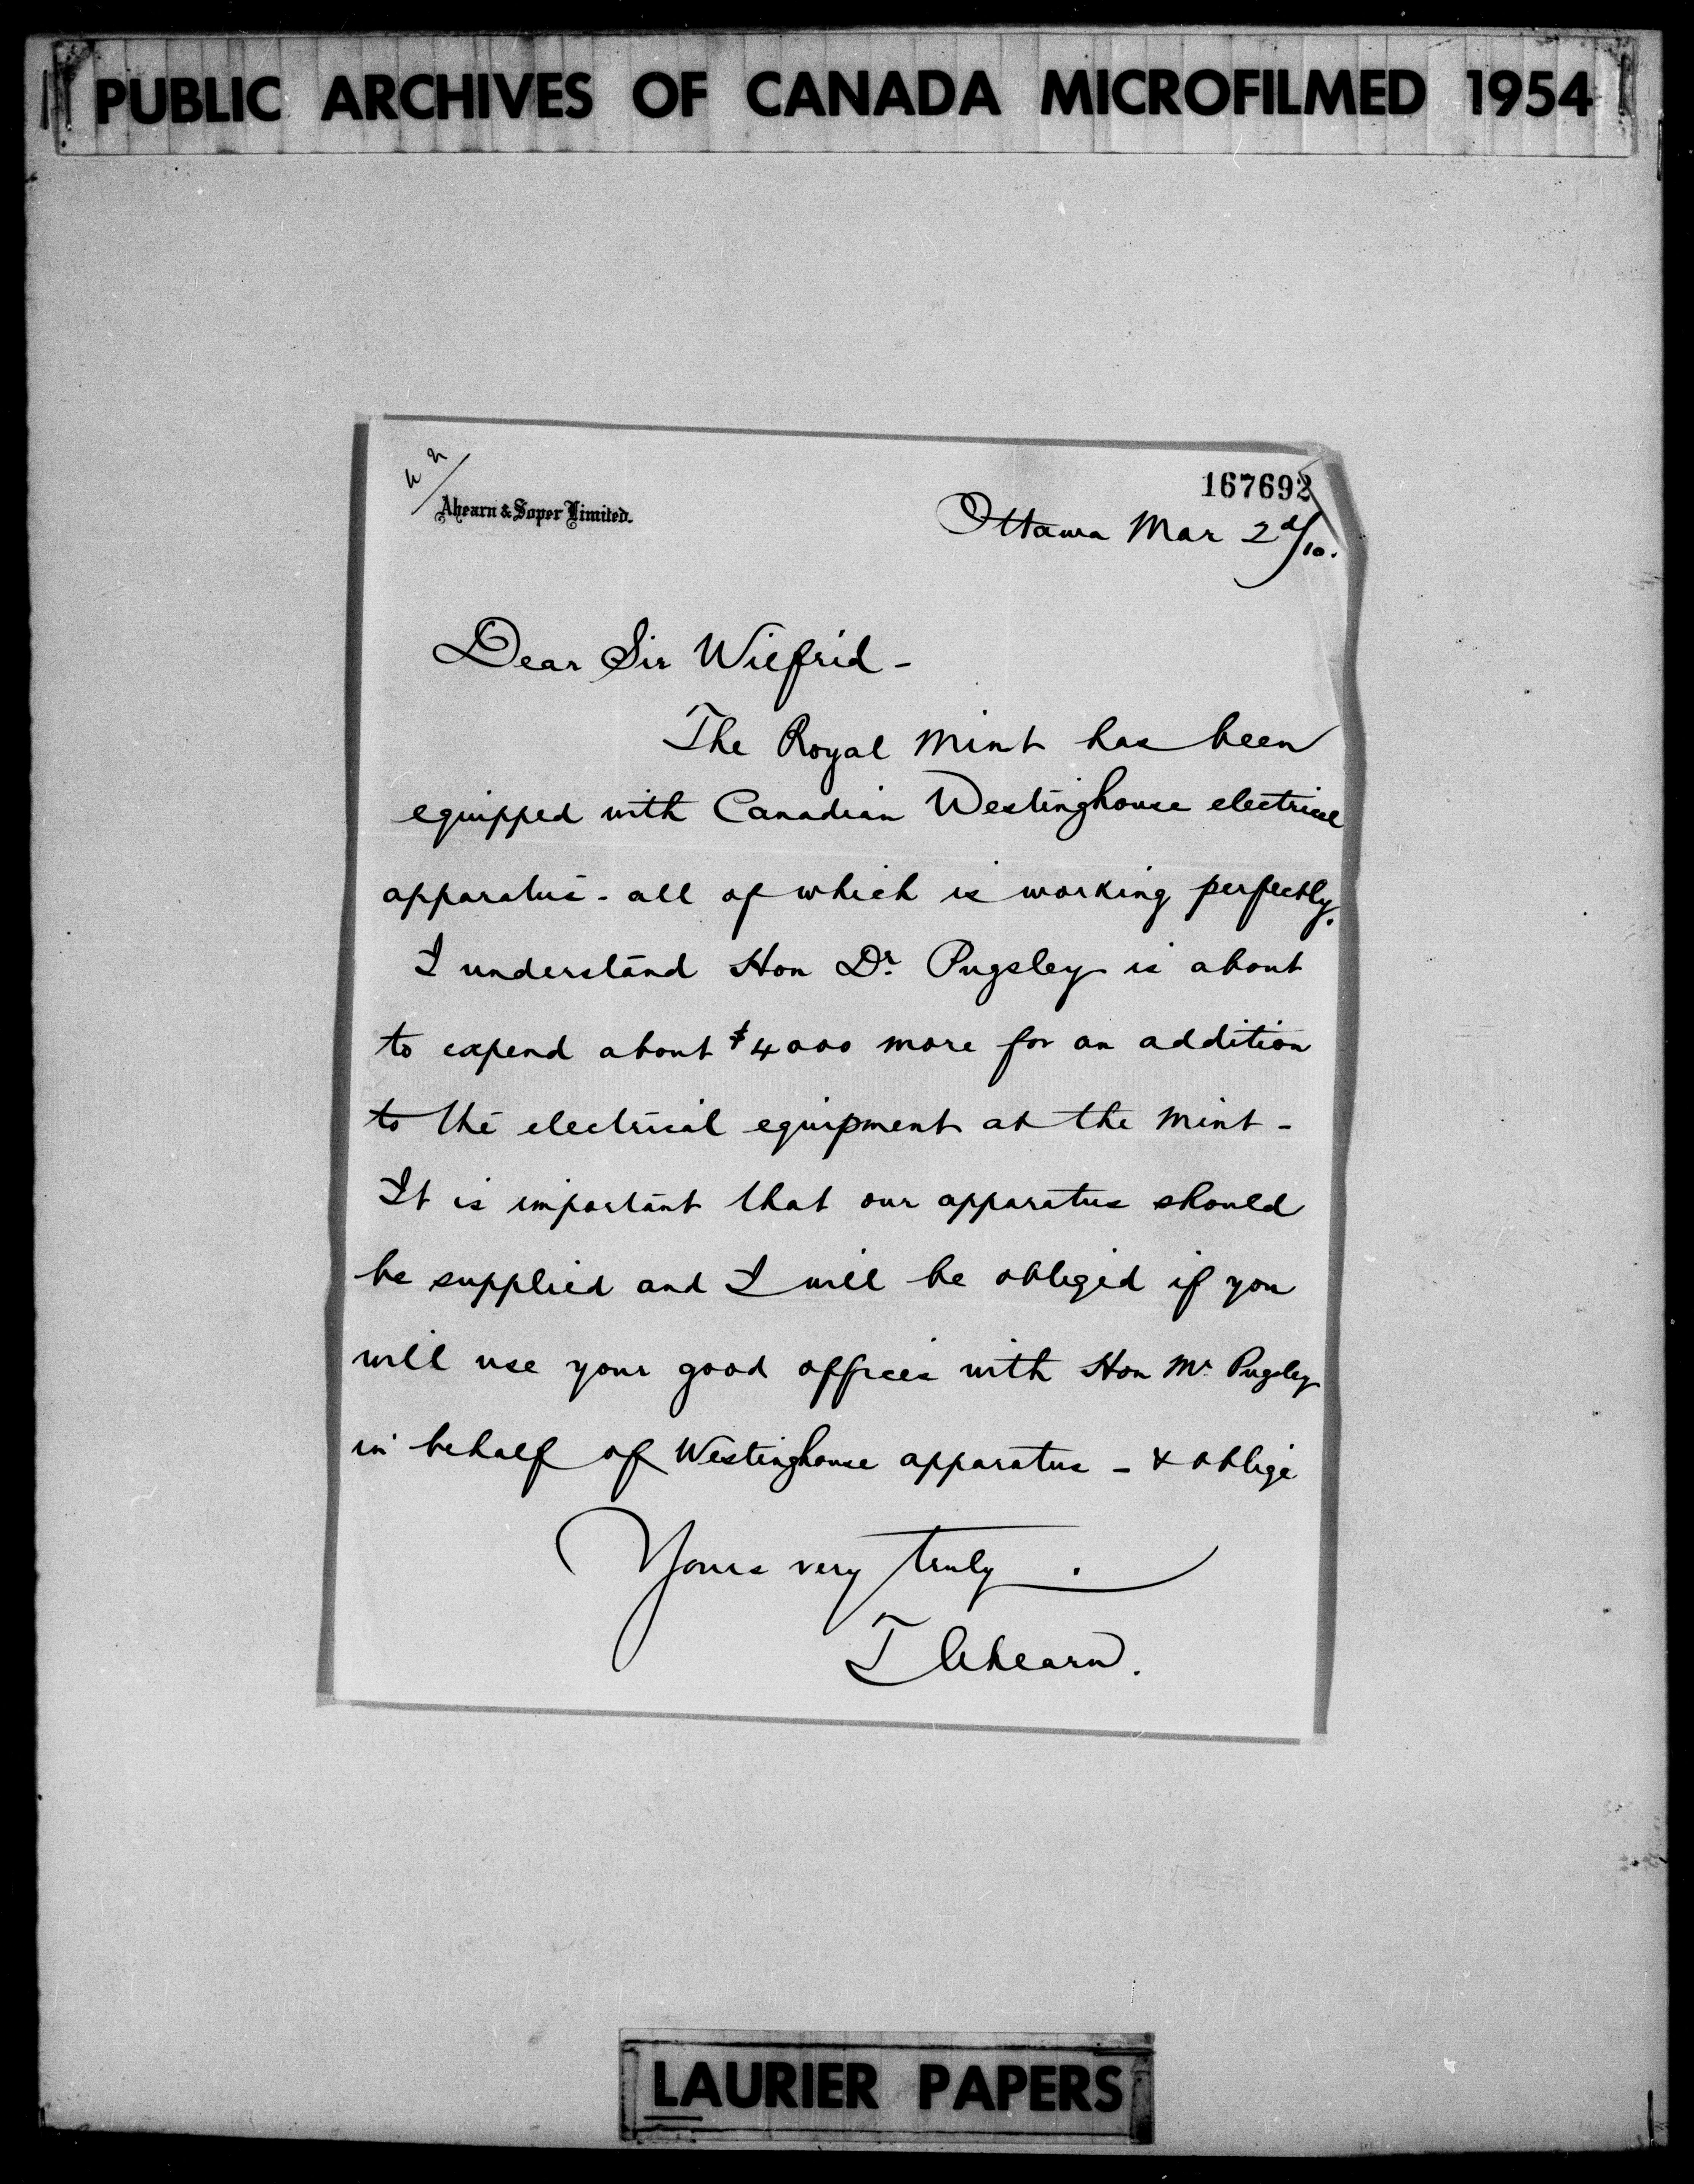 PUBLIC ARCHIVES OF CANADA MICROFILMED 1954
167692
Ahearn & Soper Limited.
Ottawa Mar 2d/10.
Dear Sir Wilfrid -
The Royal Mint has been
equipped with Canadian Westinghouse electrical
apparatus - all of which is working perfectly.
I understand Hon Dr. Pugsley is about
to expend about $4000 more for an addition
to the electrical equipment at the Mint -
It is important that our apparatus should
be supplied and I will be obliged if you
will use your good offices with Hon Mr. Pugsley
in behalf of Westinghouse apparatus - & oblige
Yours very truly.
T Ahearn.
LAURIER PAPERS